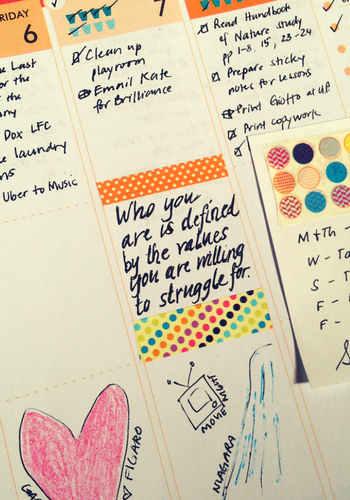 RIDAY
6
7
he Last
or the
the
Dox LFC
laundry
Uber to Music
Clean up
playroom
Email Kate
for Brilliance
Read Handbook
of Nature study
pp 1-8, 15, 23-24
Prepare sticky
notes for lessons
Print Giotto at U.P.
Print copywork
Who you
are is defined
by the values
you are willing
to struggle for.
M+Th -
W - Ta
S - T
F -
F -
S
FIGARO
MOVIE
NIGHT
NIAGARA